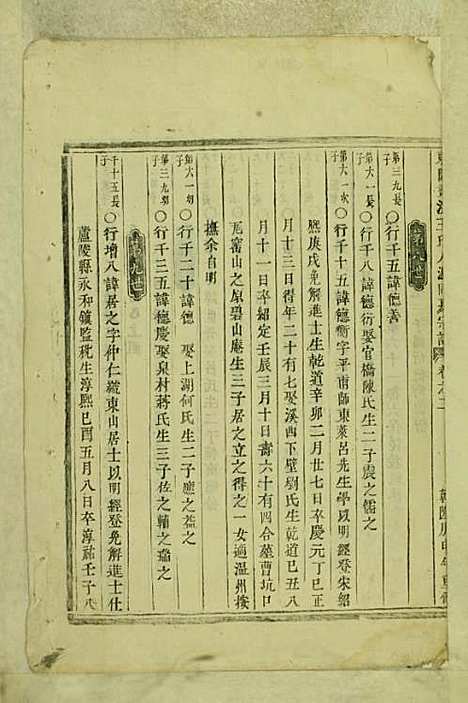 第三九長子○行千五諱德善
第六一長子○行千八諱德衍娶官橋陳氏生二子震之儒之
第六一次子○行千十五諱德衡字平甫師東萊呂先生學以明經登宋紹
熙庚戌免解進士生乾道辛卯二月廿七日卒慶元丁巳正
月十三日得年二十有七娶溪西下壁劉氏生乾道己丑八
月十一日卒紹定壬辰三月十日壽六十有四合葬曹坑口
瓦窑山之原碧山庵生三子居之立之得之一女適溫州按
撫余自明
第六一幼子○行千二十諱德 娶上湖何氏生二子應之益之
第三九幼子○行千三五諱德慶娶泉村蔣氏生三子佐之輔之瑞之
千十五長子○行增八諱居之字仲仁號東山居士以明經登免解進士仕
盧陵縣永和鎮監稅生淳熙己酉五月八日卒淳祐壬子八